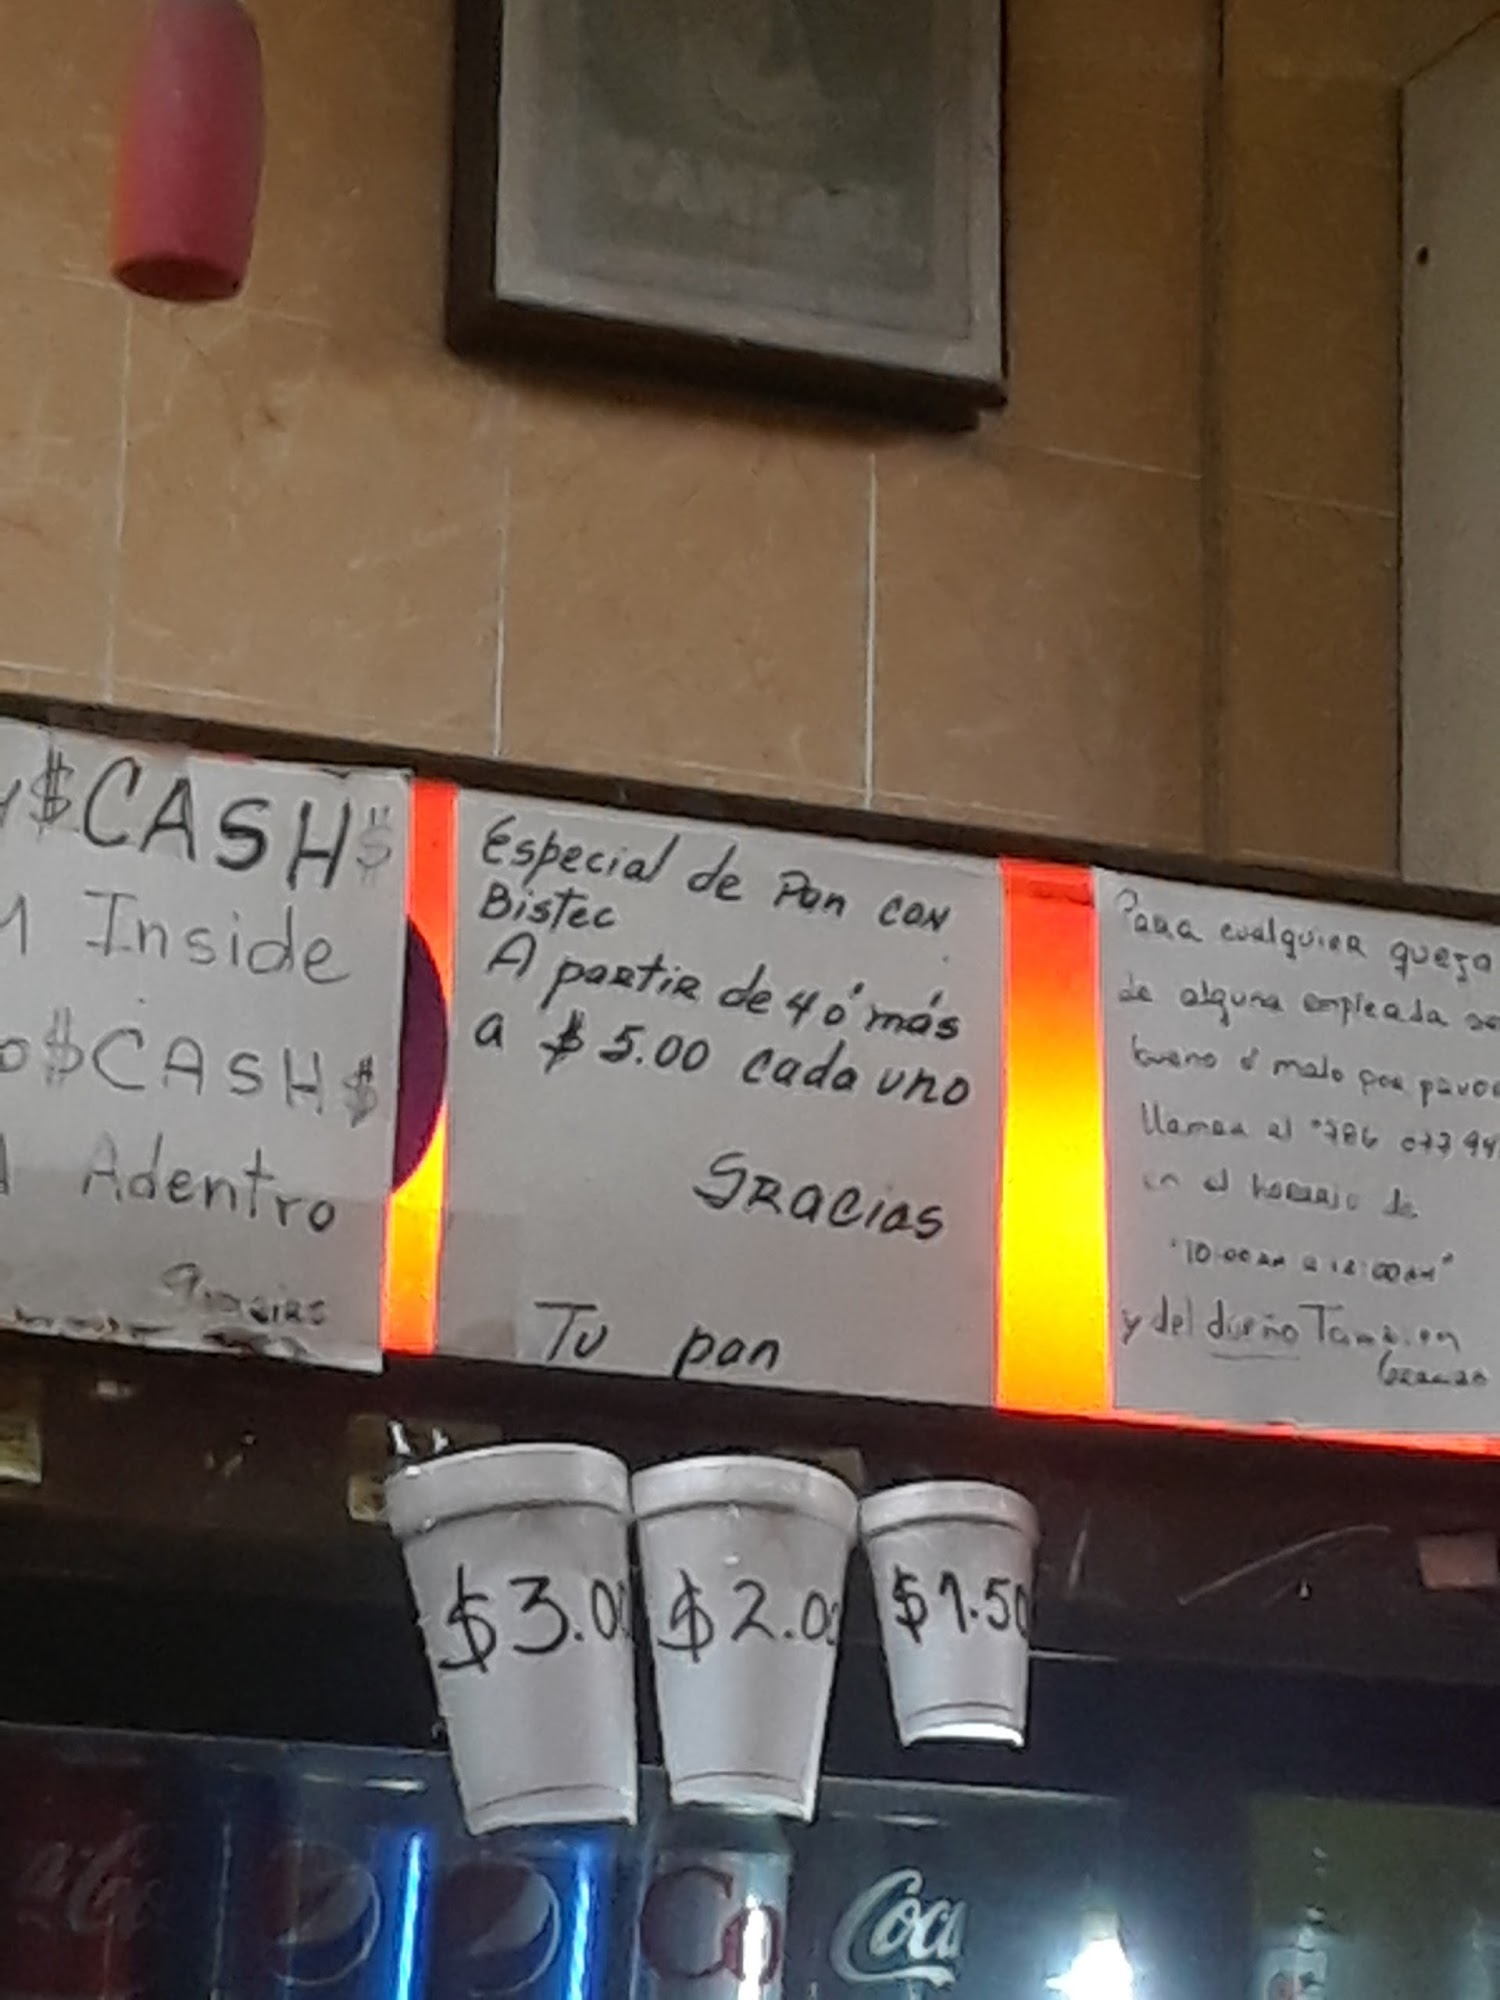 $CASH$
Inside
$CASH$
Adentro
Especial de Pan con
Bistec
A partir de 4 ó más
a $5.00 cada uno
Gracias
Tu pan
Para cualquier queja
de alguna empleada
bueno ó malo por
llamar al 786
en el horario de
y del dueño Tambien
$3.00
$2.00
$1.50
Co
Coca